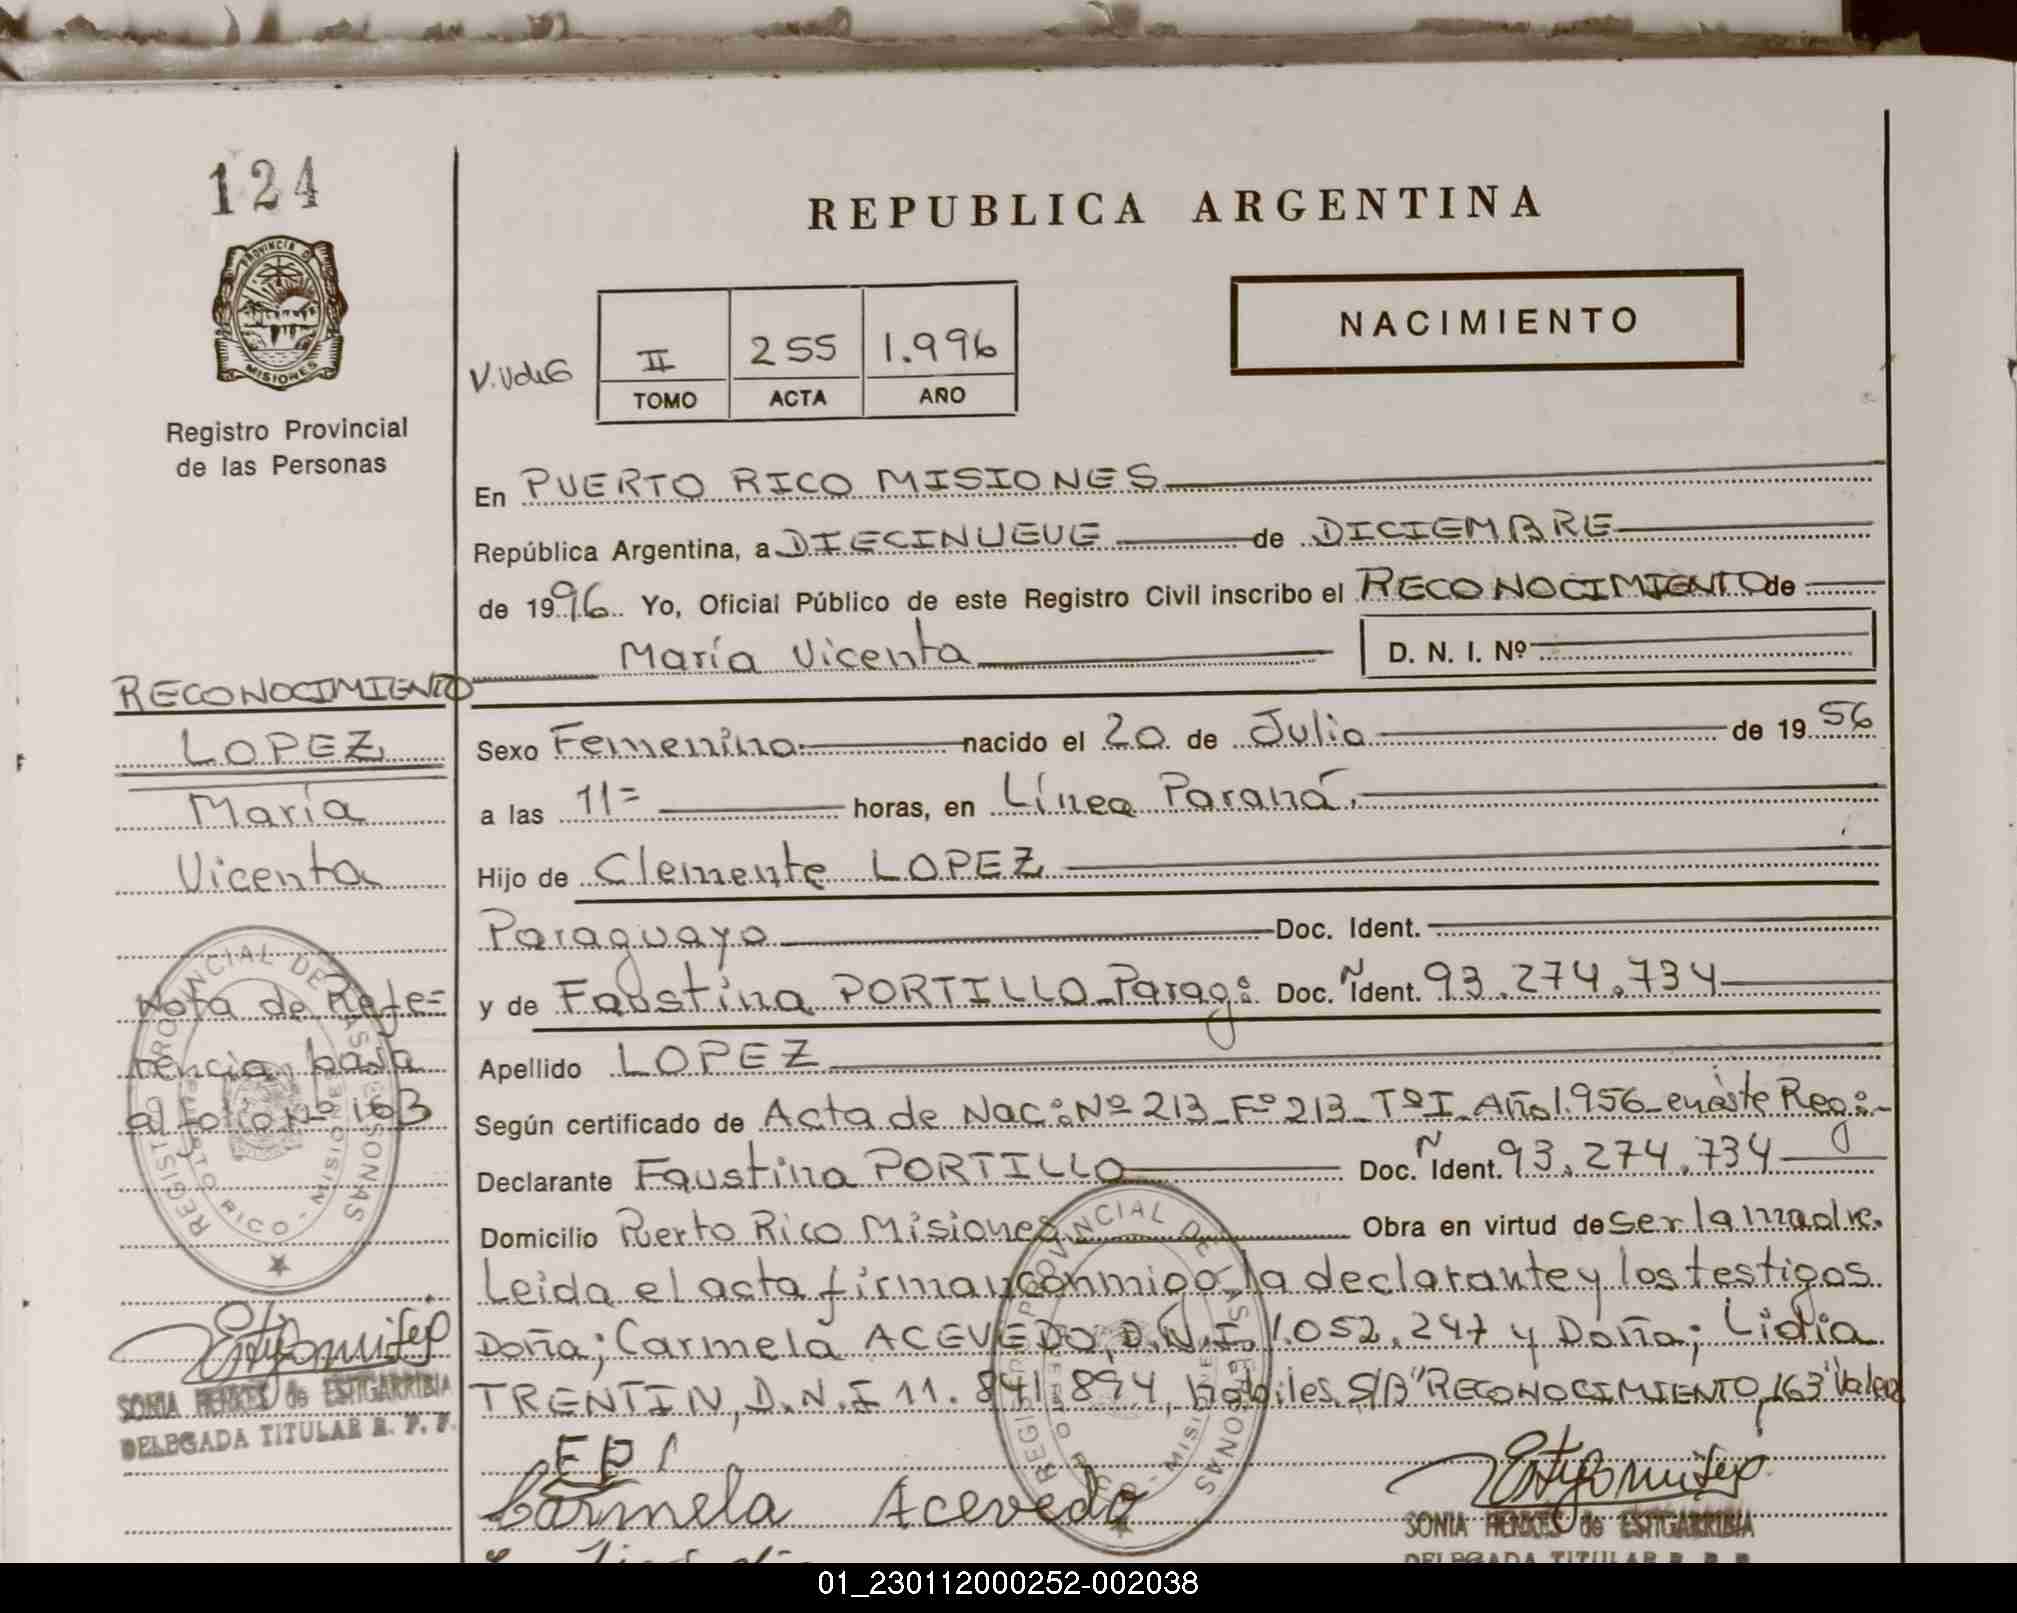 124
REPUBLICA ARGENTINA
PROVINCIA D
MISIONES
Registro Provincial
de las Personas
II 255 1.996
TOMO ACTA AÑO
NACIMIENTO
En PUERTO RICO MISIONES
República Argentina, a DIECINUEVE de DICIEMBRE
de 1996 Yo, Oficial Público de este Registro Civil inscribo el RECONOCIMIENTO de
María Vicenta D. N. I. Nº
RECONOCIMIENTO
LOPEZ
María
Vicenta
Sexo Femenino nacido el 20 de Julio de 1956
a las 11= horas, en Línea Paraná.
Hijo de Clemente LOPEZ
Paraguayo Doc. Ident.
y de Faustina PORTILLO Parag: Doc. Ñ Ident. 93.274.734
Apellido LOPEZ
Según certificado de Acta de Nac: Nº 213 Fº 213 Tº I Año 1.956 en éste Reg:
Declarante Faustina PORTILLO Doc. Ñ Ident. 93.274.734
Domicilio Puerto Rico Misiones Obra en virtud de ser la madre.
Leida el acta firman conmigo la declarante y los testigos
Doña; Carmela ACEVEDO, D.N.I. 1.052.247 y Doña; Lidia
TRENTIN, D.N.I 11.841.894, habiles. S/B "RECONOCIMIENTO, 163" Valen
Nota de Refe=
rencia bajo
al folio Nº 163
REGISTRO PROVINCIAL DE LAS PERSONAS
PUERTO RICO - MISIONES
SONIA HENKES de ESTIGARRIBIA
DELEGADA TITULAR R. P. P.
REGISTRO PROVINCIAL DE LAS PERSONAS
Carmela Acevedo
SONIA HENKES de ESTIGARRIBIA
DELEGADA TITULAR R. P. P.
01_230112000252-002038